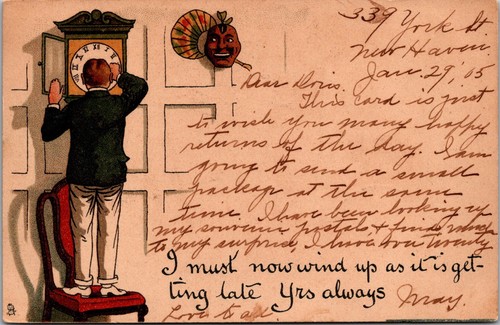 339 York St
New Haven.
Jan. 29, '05
Dear Doris.
This card is just
to wish you many happy
returns of the day. I am
going to send a small
package at the same
time. I have been looking up
my souvenir postals & find
to my surprise I have over twenty
I must now wind up as it is get-
ting late Yrs always
May.
Love to all.